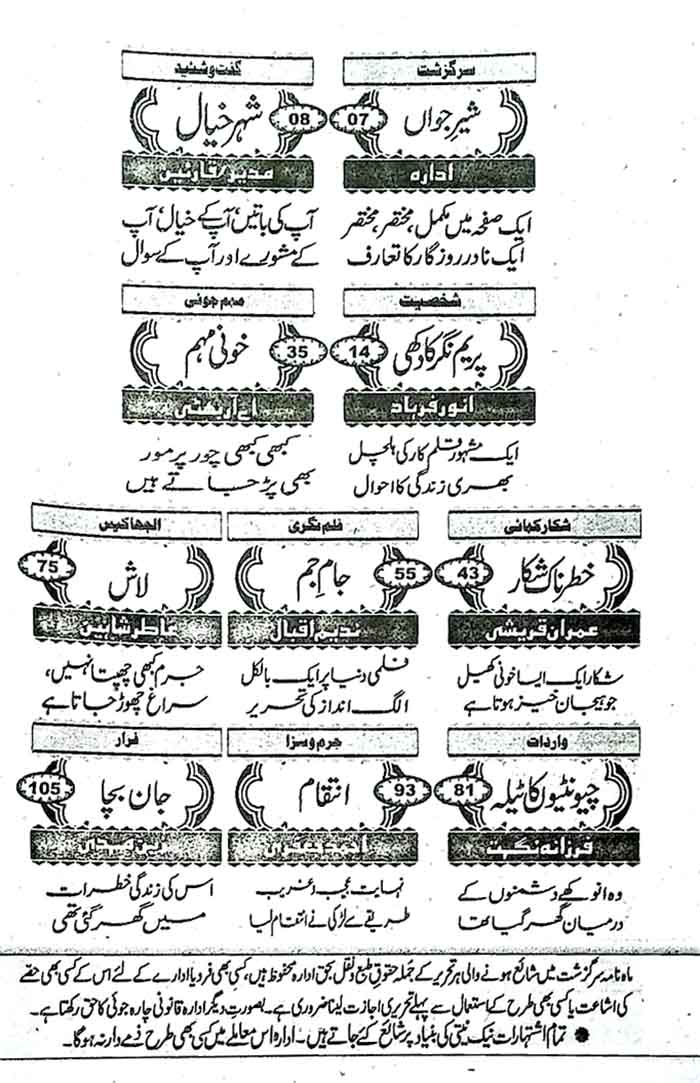 سرگزشت
شیرِ جواں
07
ادارہ
ایک صفحہ میں مکمل، مختصر، مختصر
ایک نادر روزگار کا تعارف
گفت و شنید
شہرِ خیال
08
مدیر/قارئین
آپ کی باتیں، آپ کے خیال، آپ
کے مشورے اور آپ کے سوال
شخصیت
پریم نگر کا دکھی
14
انور فرہاد
ایک مشہور قلم کار کی ہلچل
بھری زندگی کا احوال
مہم جوئی
خونی مہم
35
اے آر بھٹی
کبھی کبھی چور پر مور
بھی پڑ جاتے ہیں
شکار کہانی
خطرناک شکار
43
عمران قریشی
شکار ایک ایسا خونی کھیل
جو ہیجان خیز ہوتا ہے
فلم نگری
جامِ جم
55
ندیم اقبال
فلمی دنیا پر ایک بالکل
الگ انداز کی تحریر
الجھا کیس
لاش
75
عاطر شاہین
جرم کبھی چھپتا نہیں،
سراغ چھوڑ جاتا ہے
واردات
چیونٹیوں کا ٹیلہ
81
فرزانہ نکہت
وہ انوکھے دشمنوں کے
درمیان گھر گیا تھا
جرم و سزا
انتقام
93
نہایت عجیب و غریب
طریقے سے لڑکی نے انتقام لیا
فرار
جان بچا
105
اس کی زندگی خطرات
میں گھر گئی تھی
ماہنامہ سرگزشت میں شائع ہونے والی ہر تحریر کے جملہ حقوق طبع و نقل بحق ادارہ محفوظ ہیں، کسی بھی فرد یا ادارے کے لئے اس کے کسی بھی حصے
کی اشاعت یا کسی بھی طرح کے استعمال سے پہلے تحریری اجازت لینا ضروری ہے۔ بصورت دیگر ادارہ قانونی چارہ جوئی کا حق رکھتا ہے۔
● تمام اشتہارات نیک نیتی کی بنیاد پر شائع کئے جاتے ہیں۔ ادارہ اس معاملے میں کسی بھی طرح ذمے دار نہ ہوگا۔